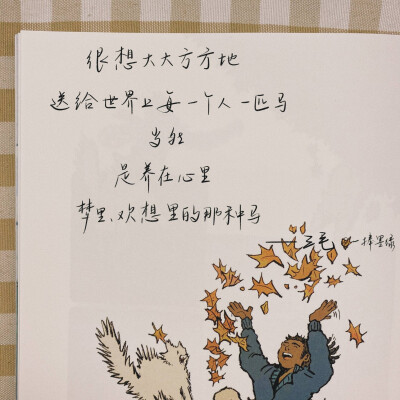 很想大大方方地
送给世界上每一个人一匹马
当然
是养在心里
梦里、欢想里的那种马
——三毛